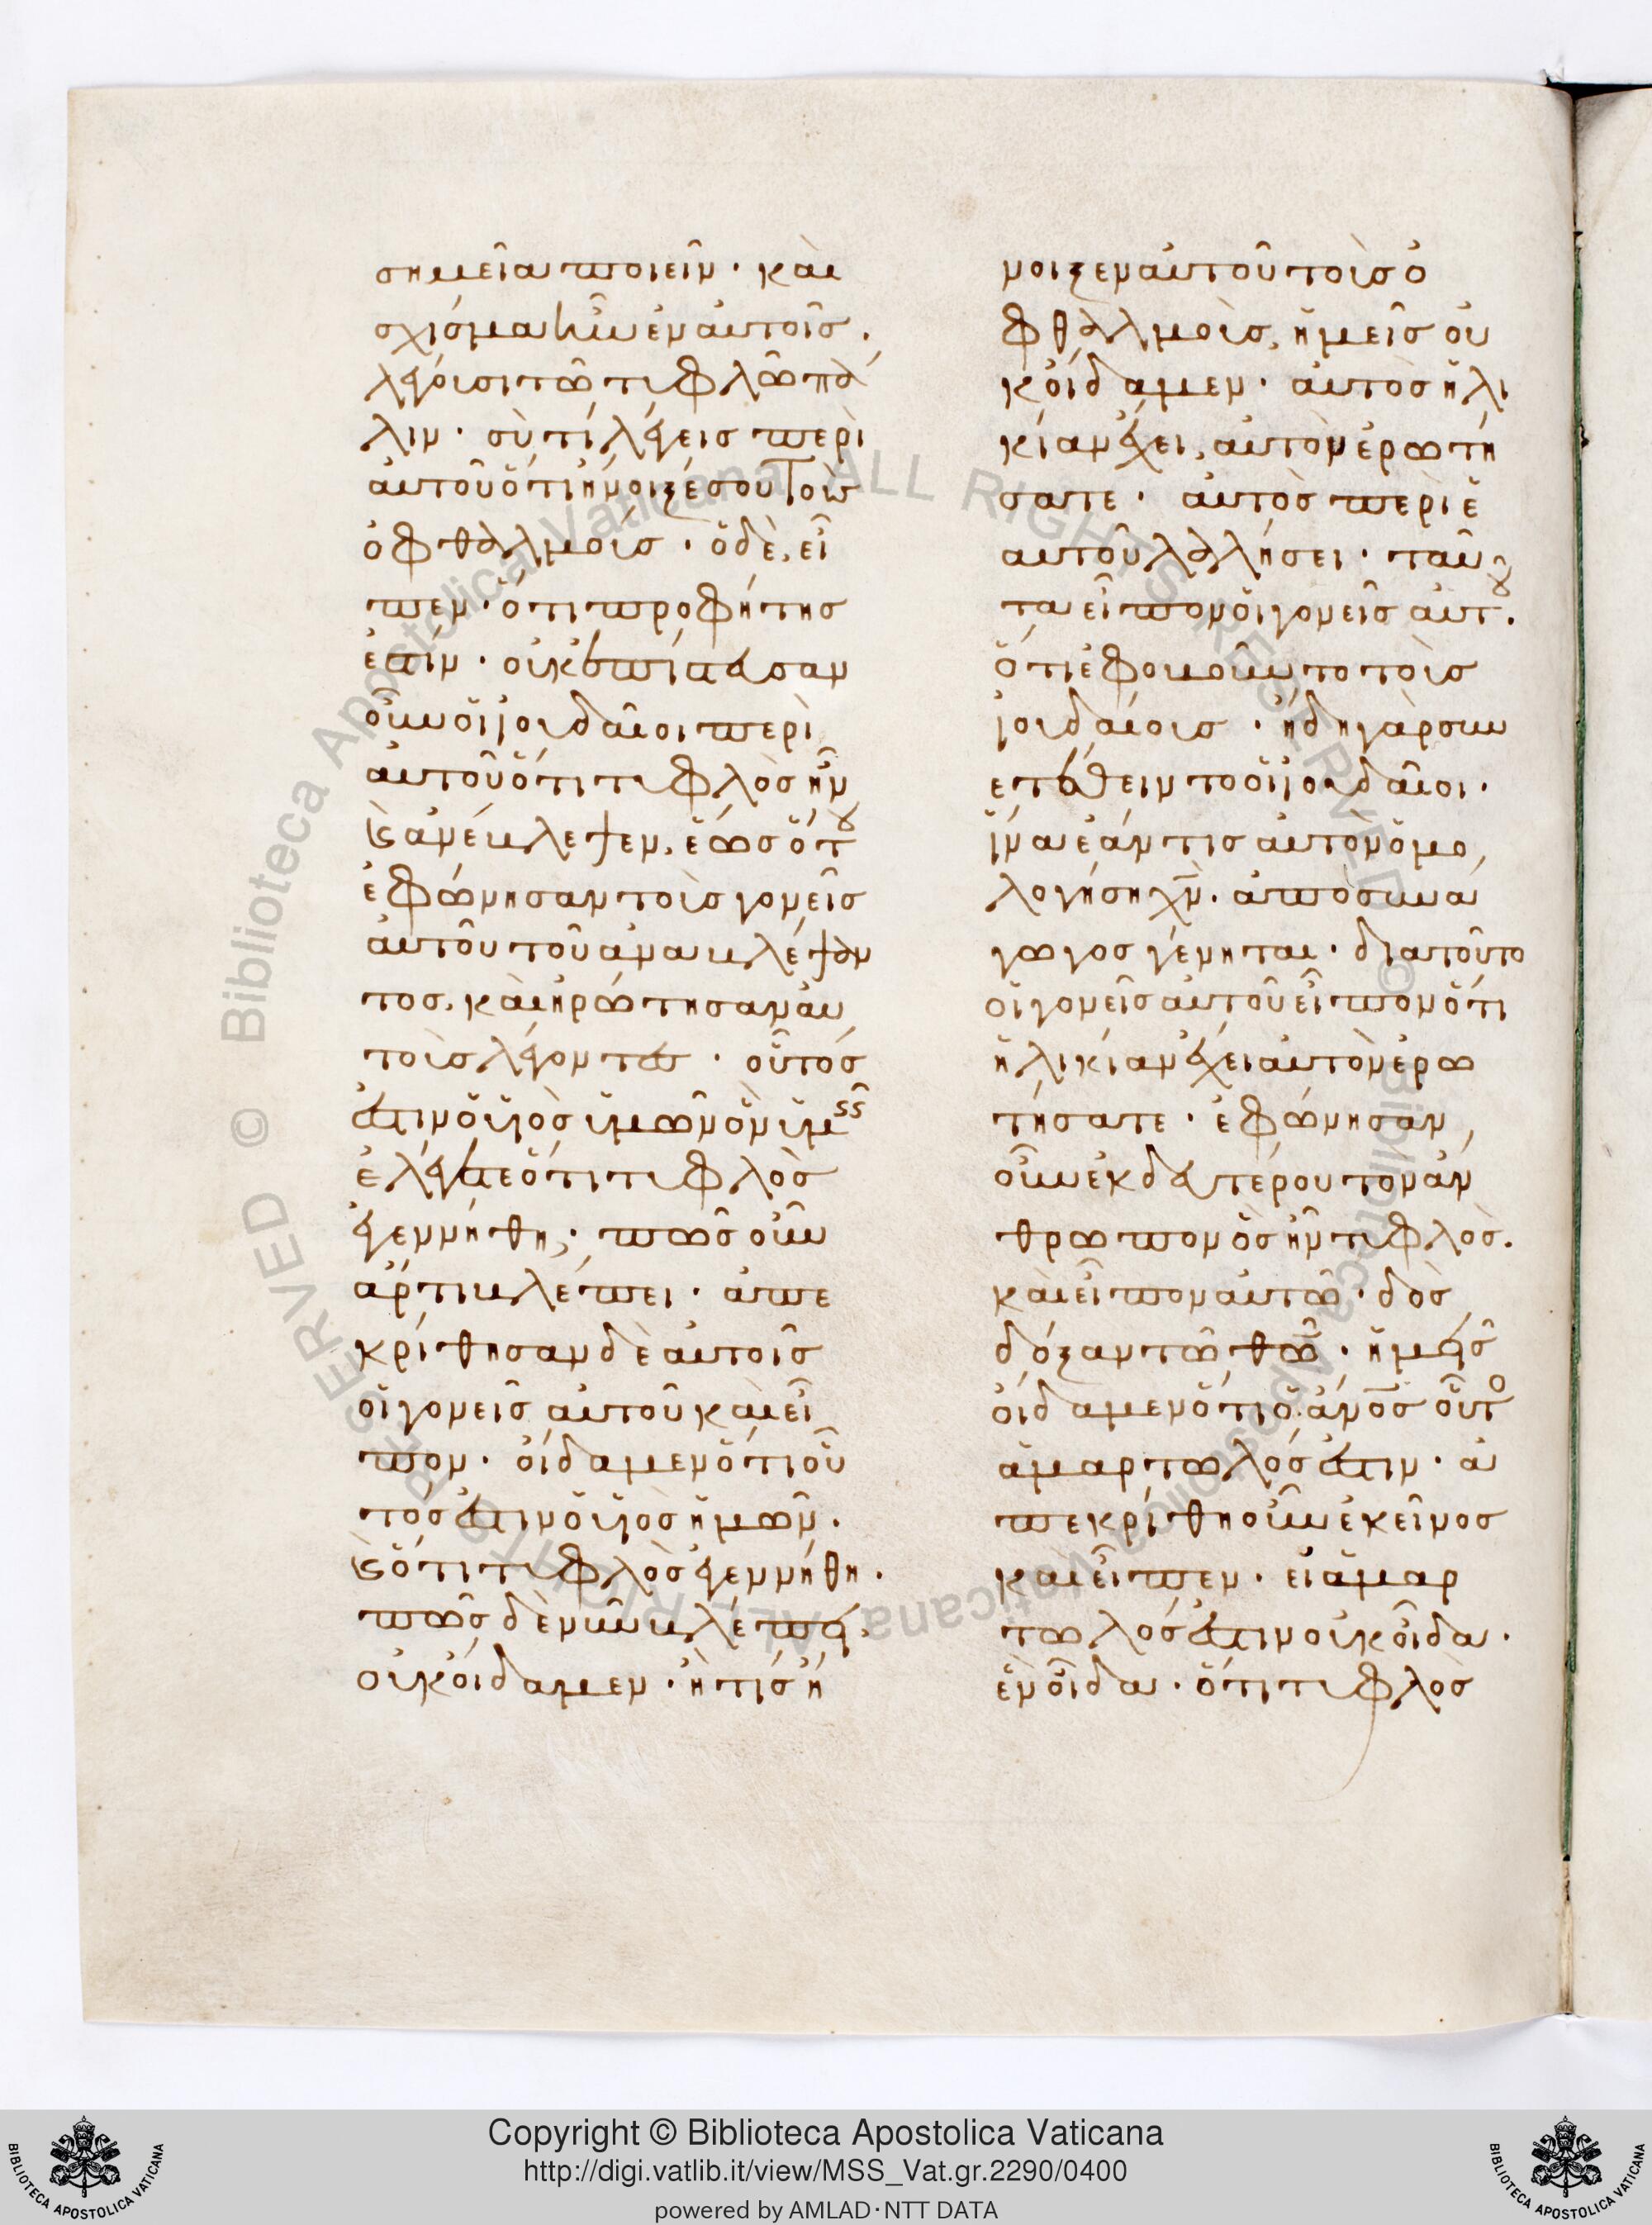 σημεῖα ποιεῖν · καὶ
σχίσμα ἦν ἐν αὐτοῖς ·
λέγουσι τῶ τυφλῶ πά
λιν · σὺ τί λέγεις περὶ
αὐτοῦ ὅτι ἤνοιξέ σου τοὺς
ὀφθαλμούς · ὁ δὲ, εἶ
πεν · ὅτι προφήτης
ἐστίν · οὐκ ἐπίστευσαν
οὖν οἱ ἰουδαῖοι περὶ
αὐτοῦ ὅτι τυφλὸς ἦν
κ ἀνέβλεψεν, ἕως ὅτου
ἐφώνησαν τοὺς γονεῖς
αὐτοῦ τοῦ ἀναβλέψαν
τος, καὶ ἠρώτησαν αὐ
τοὺς λέγοντες · οὗτός
ἐστιν ὁ υἱὸς ὑμῶν ὃν ὑμεῖς
ἐλέγετε ὅτι τυφλὸς
ἐγεννήθη; · πῶς οὖν
ἄρτι βλέπει · ἀπε
κρίθησαν δὲ αὐτοῖς
οἱ γονεῖς αὐτοῦ καὶ εἶ
πον · οἴδαμεν ὅτι οὗ
τός ἐστιν ὁ υἱὸς ἡμῶν ·
κ ὅτι τυφλὸς ἐγεννήθη ·
πῶς δὲ νῦν βλέπει,
οὐκ οἴδαμεν · ἢ τίς ἤ
νοιξεν αὐτοῦ τοὺς ὀ
φθαλμούς, ἡμεῖς οὐ
κ οἴδαμεν · αὐτὸς ἡλι
κίαν ἔχει, αὐτὸν ἐρωτή
σατε · αὐτὸς περὶ ἑ
αυτοῦ λαλήσει · ταῦ
τα εἶπον οἱ γονεῖς αὐτοῦ ·
ὅτι ἐφοβοῦντο τοὺς
ἰουδαίους · ἤδη γὰρ συν
ετέθειντο οἱ ἰουδαῖοι ·
ἵνα ἐάν τις αὐτὸν ὁμο
λογήση χν · ἀποσυνά
γωγος γένηται · διατοῦτο
οἱ γονεῖς αὐτοῦ εἶπον ὅτι
ἡλικίαν ἔχει αὐτὸν ἐρω
τήσατε · ἐφώνησαν
οὖν ἐκ δευτέρου τὸν ἄν
θρωπον ὃς ἦν τυφλὸς ·
καὶ εἶπον αὐτῶ · δὸς
δόξαν τῶ θω · ἡμεῖς
οἴδαμεν ὅτι ὁ ανος οὗτος
ἁμαρτωλός ἐστιν · ἀ
πεκρίθη οὖν ἐκεῖνος
καὶ εἶπεν · εἰ ἁμαρ
τωλός ἐστιν οὐκ οἶδα ·
ἓν οἶδα · ὅτι τυφλὸς
Copyright © Biblioteca Apostolica Vaticana
http://digi.vatlib.it/view/MSS_Vat.gr.2290/0400
powered by AMLAD·NTT DATA